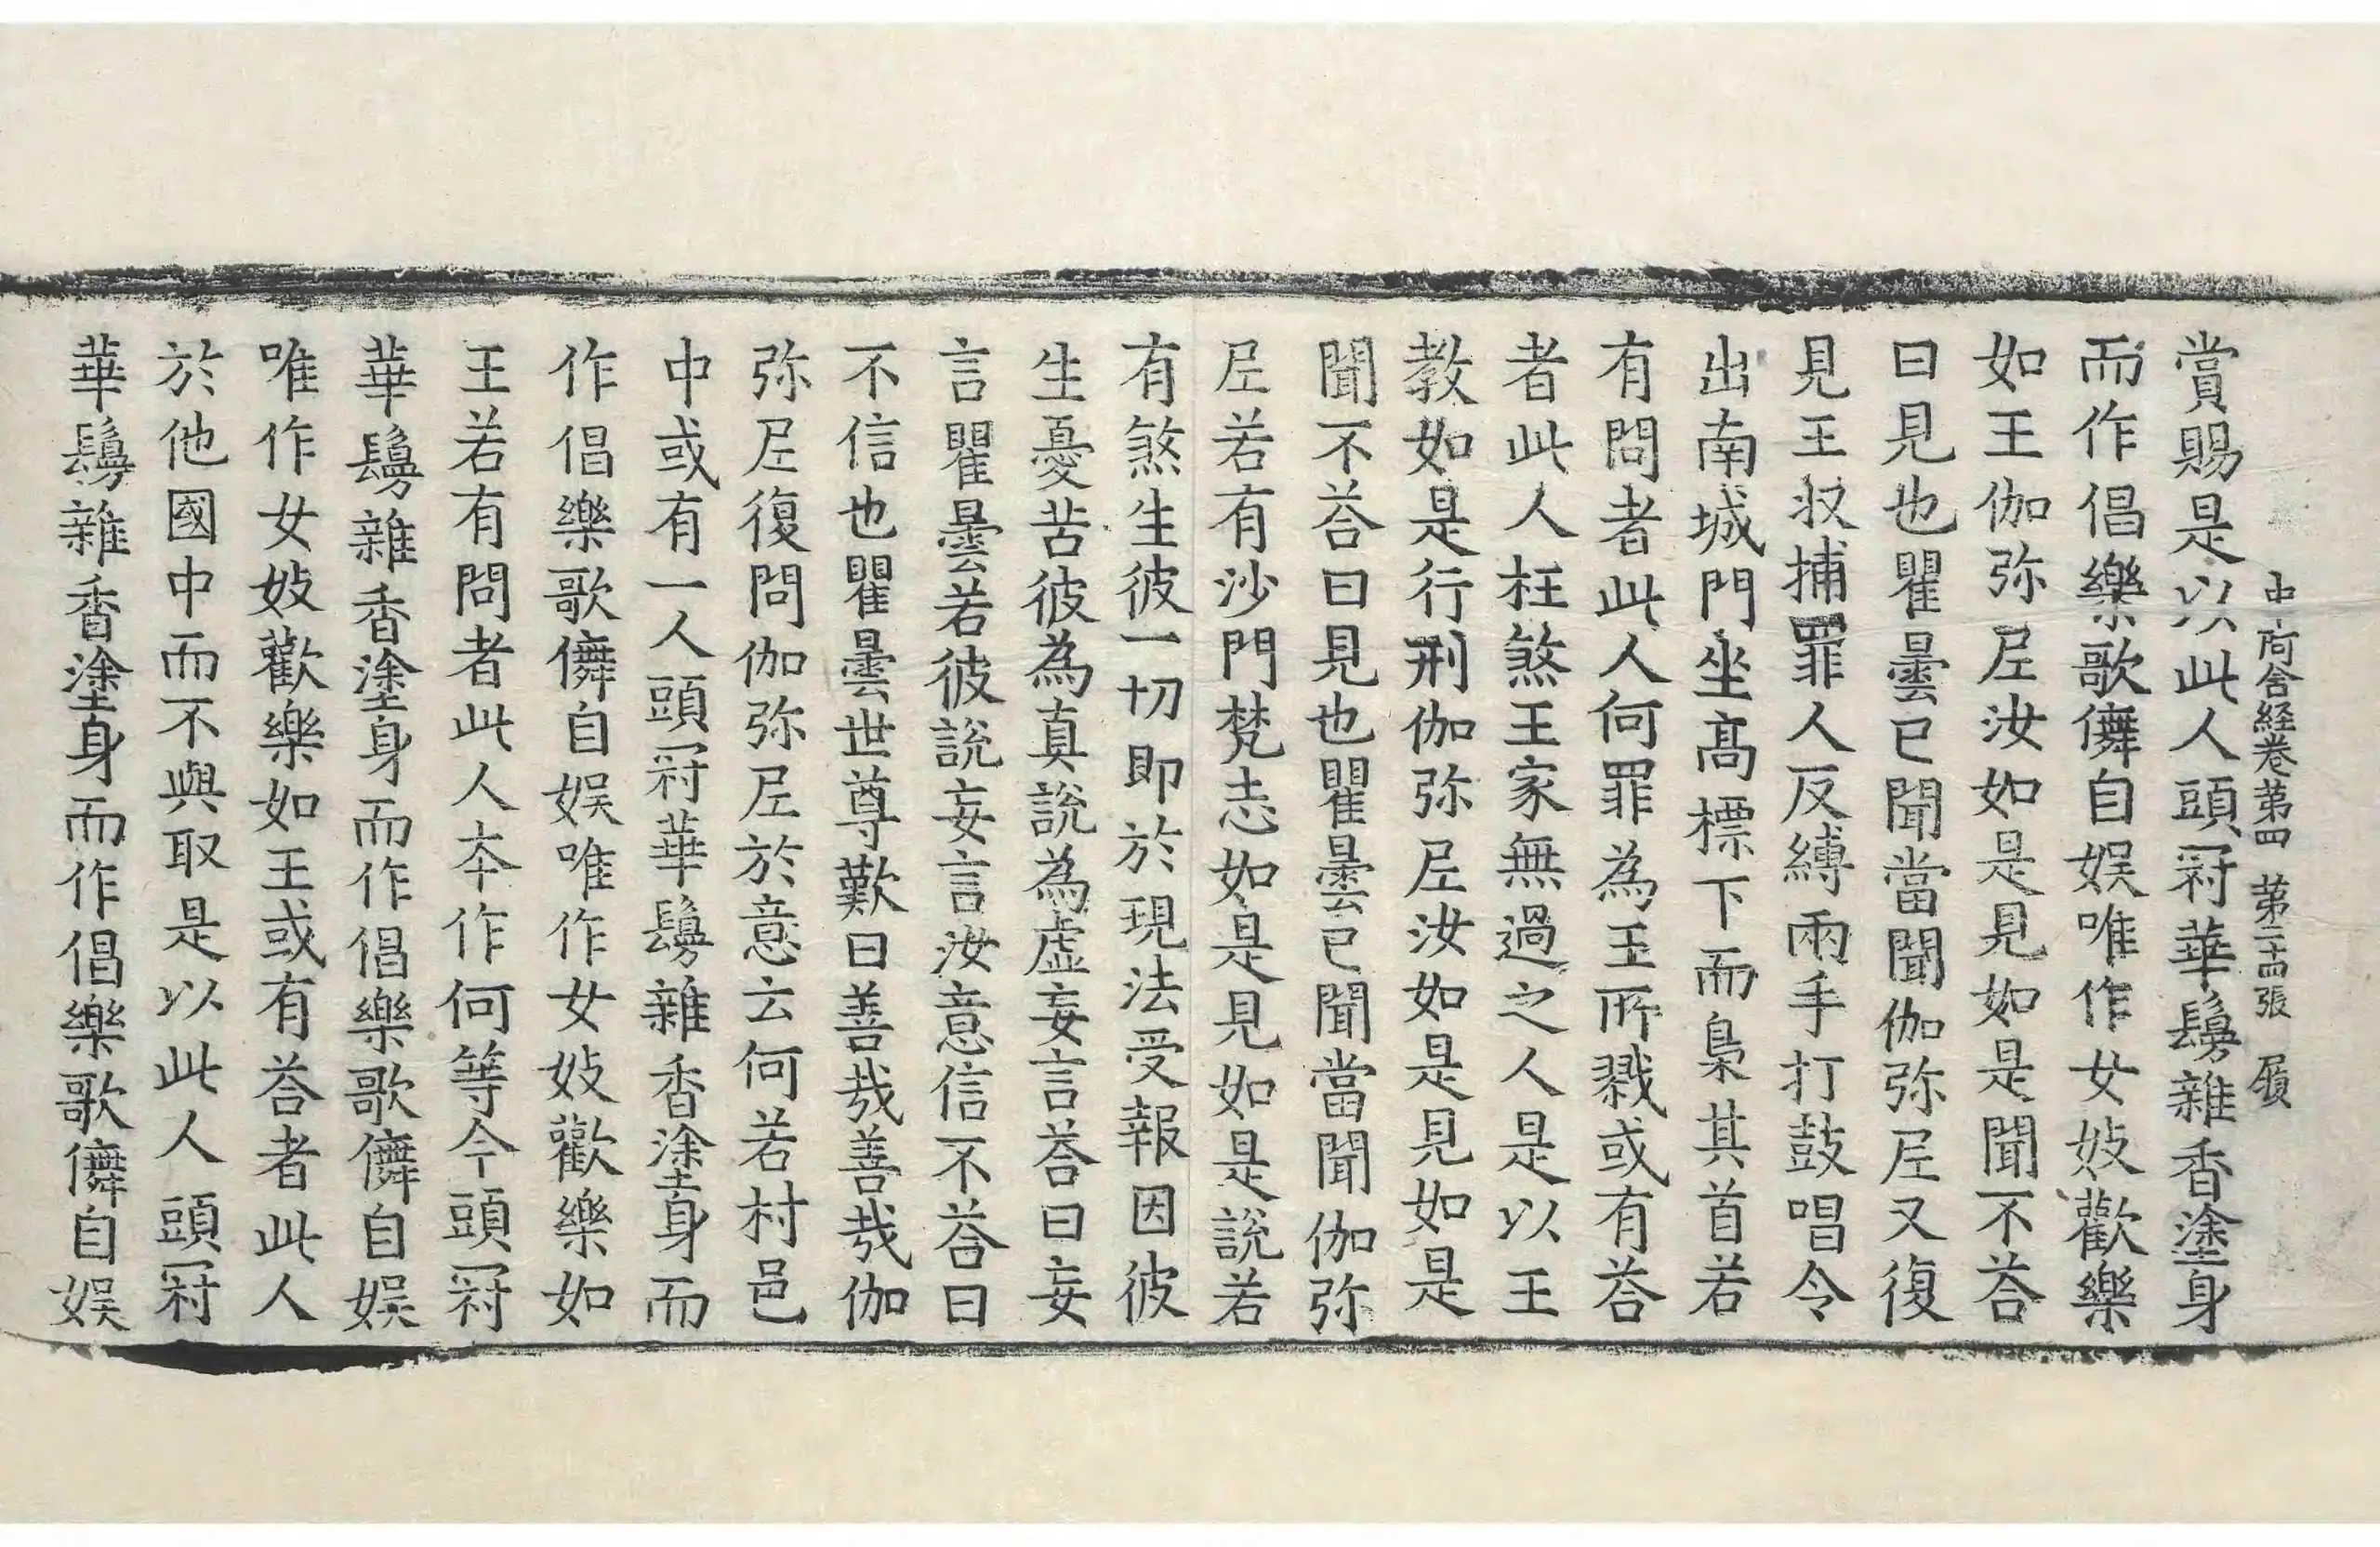 中阿含経卷第四　第二十四張　履
賞賜是以此人頭冠華鬘雜香塗身
而作倡樂歌儛自娱唯作女妓歡樂
如王伽弥尼汝如是見如是聞不荅
曰見也瞿曇已聞當聞伽弥尼又復
見王収捕罪人反縛兩手打鼓唱令
出南城門坐髙標下而梟其首若
有問者此人何罪為王所戮或有荅
者此人枉煞王家無過之人是以王
教如是行刑伽弥尼汝如是見如是
聞不荅曰見也瞿曇已聞當聞伽弥
尼若有沙門梵志如是見如是説若
有煞生彼一切即於現法受報因彼
生憂苦彼為真説為虛妄言荅曰妄
言瞿曇若彼説妄言汝意信不荅曰
不信也瞿曇世尊歎曰善哉善哉伽
弥尼復問伽弥尼於意云何若村邑
中或有一人頭冠華鬘雜香塗身而
作倡樂歌儛自娱唯作女妓歡樂如
王若有問者此人本作何等今頭冠
華鬘雜香塗身而作倡樂歌儛自娱
唯作女妓歡樂如王或有荅者此人
於他國中而不與取是以此人頭冠
華鬘雜香塗身而作倡樂歌儛自娱